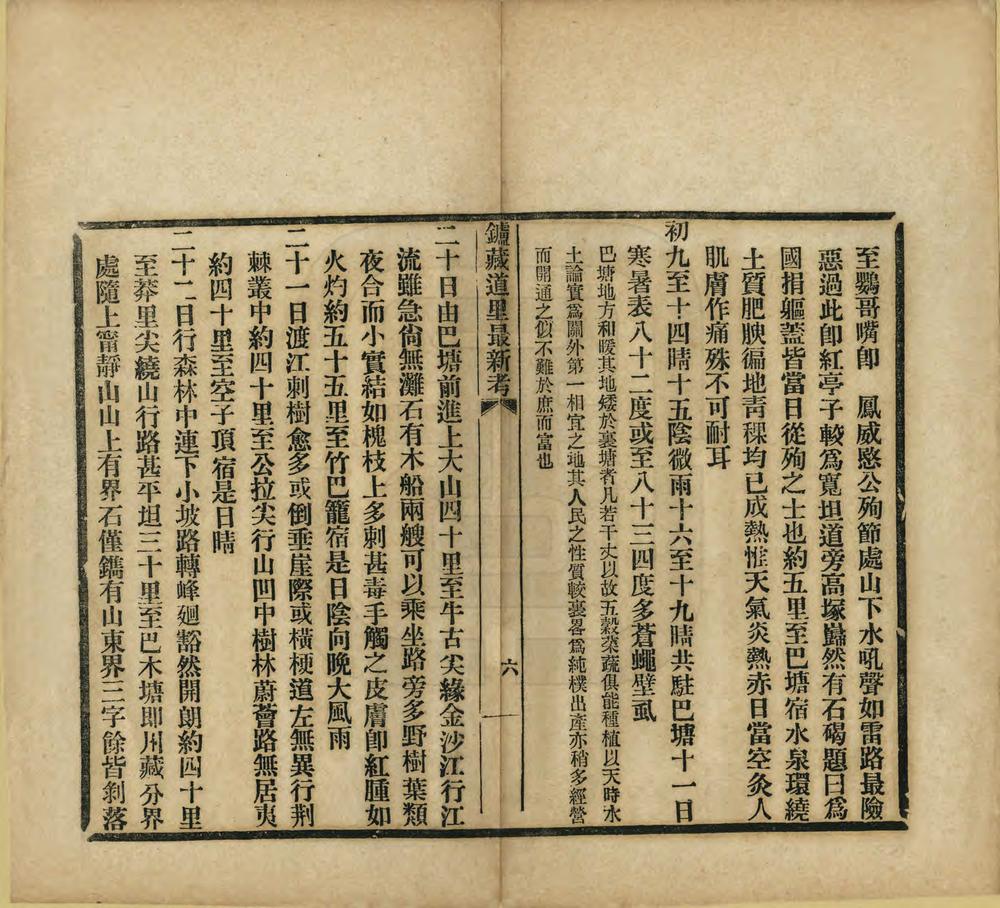 至鸚哥嘴卽　鳳威愍公殉節處山下水吼聲如雷路最險
惡過此卽紅亭子較爲寬坦道旁高塚巋然有石碣題曰爲
國捐軀蓋皆當日從殉之士也約五里至巴塘宿水泉環繞
土質肥腴徧地靑稞均已成熟惟天氣炎熱赤日當空灸人
肌膚作痛殊不可耐耳
初九至十四晴十五陰微雨十六至十九晴共駐巴塘十一日
寒暑表八十二度或至八十三四度多蒼蠅壁虱
巴塘地方和暖其地矮於裏塘者凡若干丈以故五穀菜蔬俱能種植以天時水
土論實爲關外第一相宜之地其人民之性質較裏畧爲純樸出產亦稍多經營
而開通之似不難於庶而富也
鑪藏道里最新考
六
二十日由巴塘前進上大山四十里至牛古尖緣金沙江行江
流雖急尙無灘石有木船兩艘可以乘坐路旁多野樹葉類
夜合而小實結如槐枝上多刺甚毒手觸之皮膚卽紅腫如
火灼約五十五里至竹巴籠宿是日陰向晚大風雨
二十一日渡江刺樹愈多或倒垂崖際或橫梗道左無異行荆
棘叢中約四十里至公拉尖行山凹中樹林蔚薈路無居夷
約四十里至空子頂宿是日晴
二十二日行森林中連下小坡路轉峰廻豁然開朗約四十里
至莽里尖繞山行路甚平坦三十里至巴木塘即川藏分界
處隨上甯靜山山上有界石僅鐫有山東界三字餘皆剝落